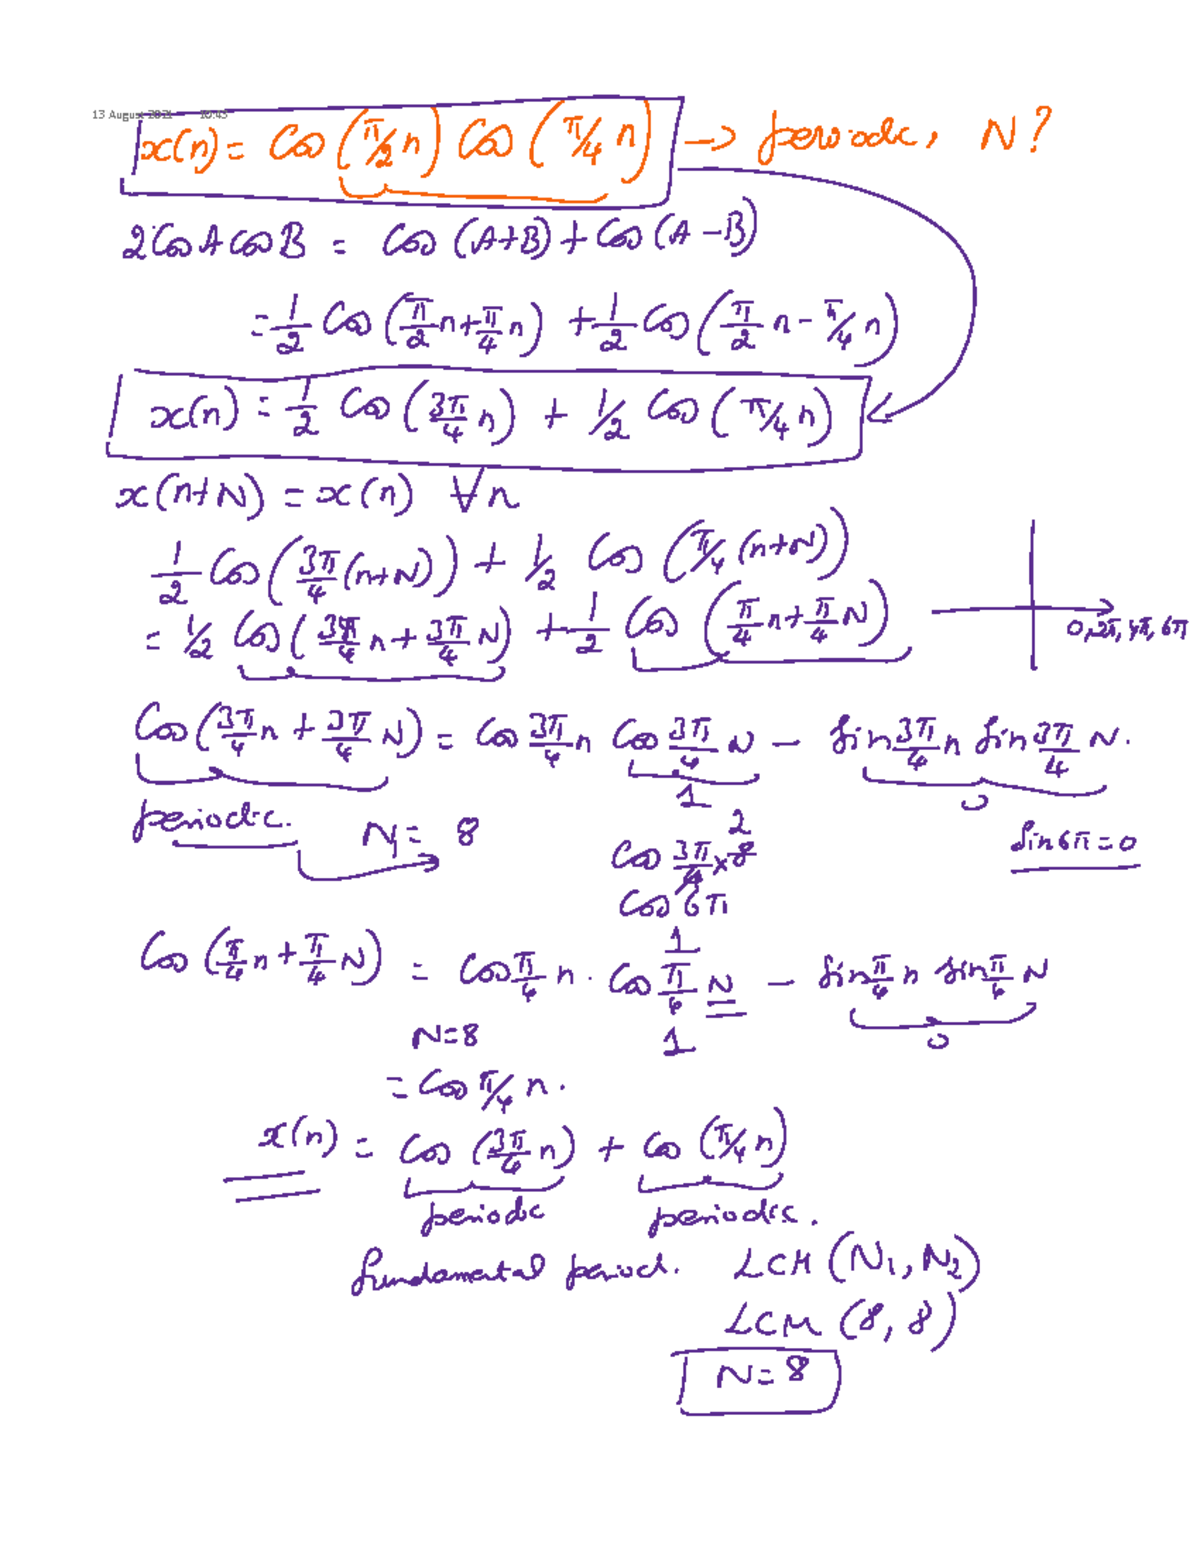 13 August 2021 10:45
x(n) = Cos(π/2 n) Cos(π/4 n) → periodic, N?
2CosACosB = Cos(A+B) + Cos(A-B)
= 1/2 Cos(π/2 n + π/4 n) + 1/2 Cos(π/2 n - π/4 n)
x(n) = 1/2 Cos(3π/4 n) + 1/2 Cos(π/4 n)
x(n+N) = x(n) ∀n
1/2 Cos(3π/4 (n+N)) + 1/2 Cos(π/4 (n+N))
= 1/2 Cos(3π/4 n + 3π/4 N) + 1/2 Cos(π/4 n + π/4 N)
0, 2π, 4π, 6π
Cos(3π/4 n + 3π/4 N) = Cos 3π/4 n Cos 3π/4 N - Sin 3π/4 n Sin 3π/4 N.
1 0
periodic. N1 = 8
Cos 3π/4 × 8 2
Sin6π = 0
Cos 6π
1
Cos(π/4 n + π/4 N) = Cos π/4 n . Cos π/4 N - Sin π/4 n Sin π/4 N
N=8 1 0
= Cos π/4 n.
x(n) = Cos(3π/4 n) + Cos(π/4 n)
periodic periodic.
fundamental period. LCM (N1, N2)
LCM (8, 8)
N = 8